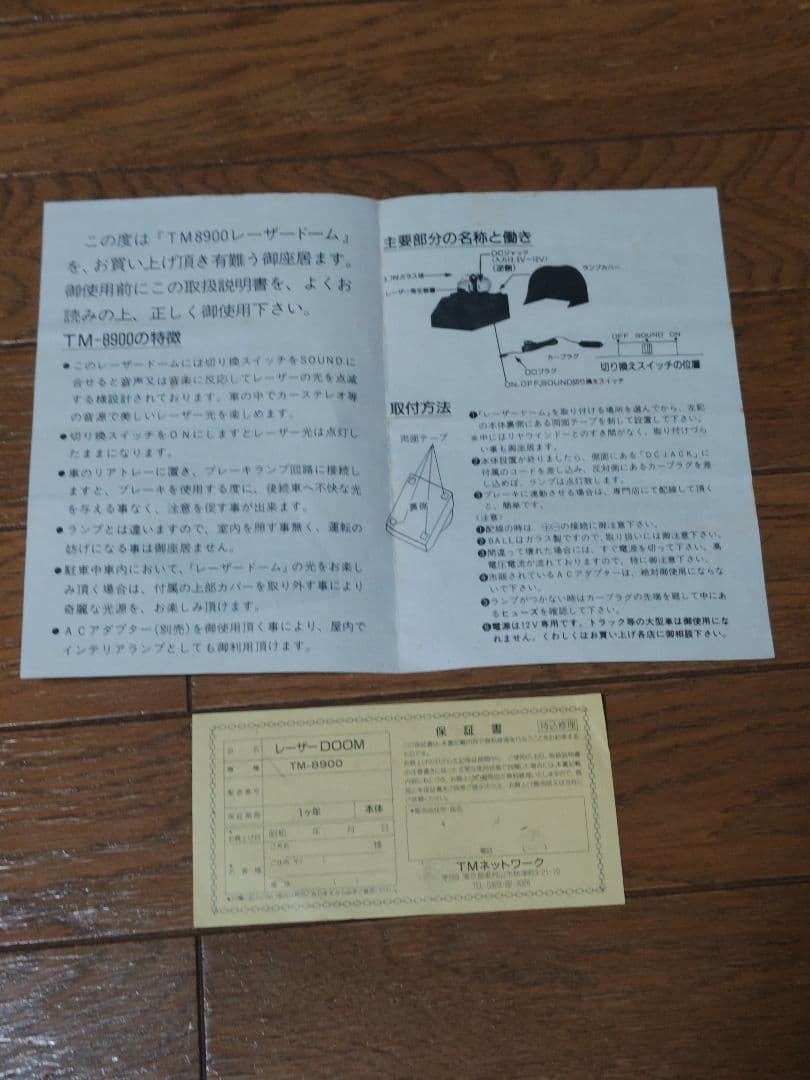 この度は『TM8900レーザードーム』
を、お買い上げ頂き有難う御座居ます。
御使用前にこの取扱説明書を、よくお
読みの上、正しく御使用下さい。
TM-8900の特徴
●このレーザードームには切り換スイッチをSOUNDに
合せると音声又は音楽に反応してレーザーの光を点滅
する様設計されております。車の中でカーステレオ等
の音源で美しいレーザー光を楽しめます。
●切り換スイッチをONにしますとレーザー光は点灯し
たままになります。
●車のリアトレーに置き、ブレーキランプ回路に接続し
ますと、ブレーキを使用する度に、後続車へ不快な光
を与える事なく、注意を促す事が出来ます。
●ランプとは違いますので、室内を照す事無く、運転の
妨げになる事は御座居ません。
●駐車中車内において、「レーザードーム」の光をお楽し
み頂く場合は、付属の上部カバーを取り外す事により
奇麗な光源を、お楽しみ頂けます。
●ACアダプター(別売)を御使用頂く事により、屋内で
インテリアランプとしても御利用頂けます。
主要部分の名称と働き
DCジャック
(逆側)
ランプカバー
レーザー発生装置
カープラグ
DCプラグ
ON,OFF,SOUND切り換えスイッチ
OFF SOUND ON
切り換えスイッチの位置
取付方法
両面テープ
裏側
❶「レーザードーム」を取り付ける場所を選んでから、左記
の本体裏側にある両面テープを剥して設置して下さい。
※中にはリヤウインドーとのすき間がなく、取り付けづら
い事も御座居ます。
❷本体設置が終りましたら、側面にある「DCJACK」に
付属のコードを差し込み、反対側にあるカープラグを差
し込めば、ランプは点灯致します。
❸ブレーキに連動させる場合は、専門店にて配線して頂く
と、簡単です。
(注意)
❶配線の時は、⊕⊖の接続に御注意下さい。
❷BALLはガラス製ですので、取り扱いには御注意下さい。
❸間違って壊れた場合には、すぐ電源を切って下さい。高
電圧電流が流れておりますので、特に御注意下さい。
❹市販されているACアダプターは、絶対御使用にならな
いで下さい。
❺ランプがつかない時はカープラグの先端を廻して中にあ
るヒューズを確認して下さい。
❻電源は12V専用です。トラック等の大型車は御使用にな
れません。くわしくはお買い上げ各店に御相談下さい。
保証書
持込修理
品名 レーザーDOOM
機種 TM-8900
製造番号
保証期間 1ヶ年 本体
お買上げ日 昭和 年 月 日
ご氏名 様
お客様
電話
TMネットワーク